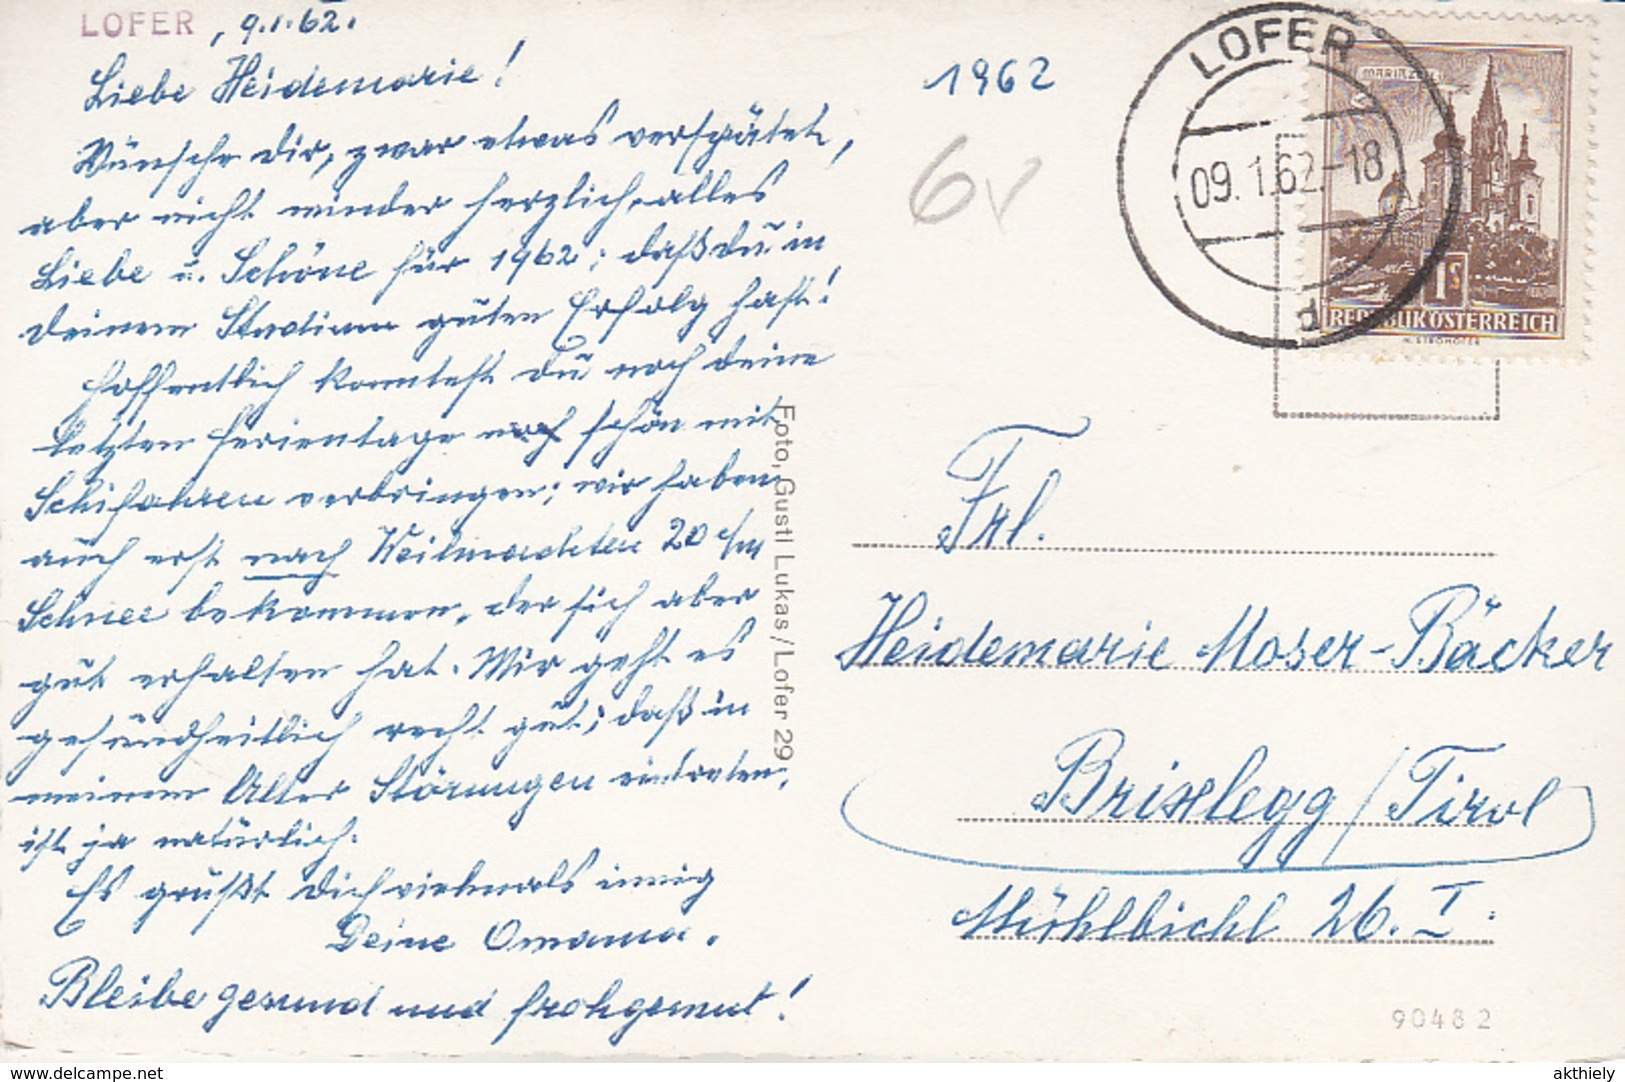 LOFER, 9.1.62.
Liebe Heidemarie!
Wünsche Dir, zwar etwas verspätet,
aber nicht minder herzlich, alles
Liebe u. Schöne für 1962; daß du in
Deinem Studium guten Erfolg hast!
Hoffentlich konntest Du noch deine
letzten Ferientage noch schön mit
Schifahren verbringen; wir haben
auch erst nach Weihnachten 20 c/m
Schnee bekommen, der sich aber
gut erhalten hat. Mir geht es
gesundheitlich recht gut; daß in
meinem Alter Störungen eintreten,
ist ja natürlich.
Es grüßt Dich vielmals innig
Deine Omama.
Bleibe gesund und frohgemut!
Foto, Gustl Lukas/Lofer 29
1962
6
LOFER
09.1.62.-18
d
MARIAZELL
1 S
REPUBLIK ÖSTERREICH
H. STROHOFER
Frl.
Heidemarie Moser-Bäcker
Brixlegg / Tirol
Mühlbichl 26. I.
90482
delcampe.net
akthiely